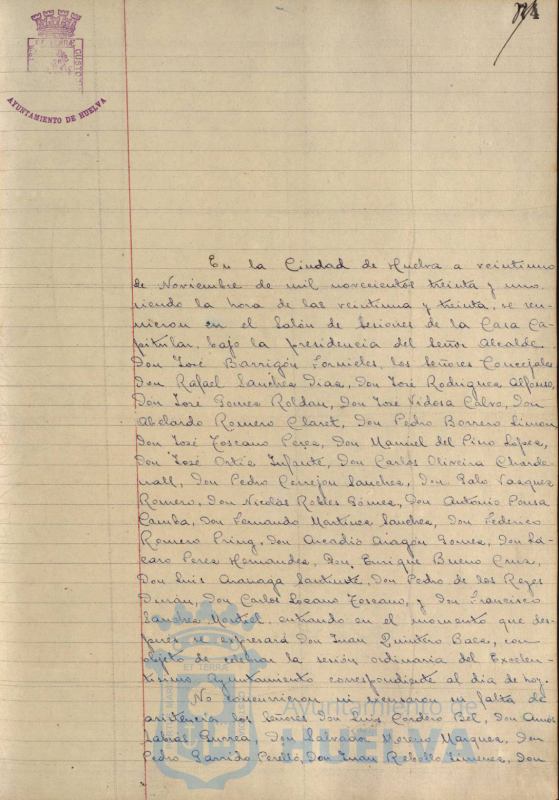 AYUNTAMIENTO DE HUELVA
En la Ciudad de Huelva a veintiuno
de Noviembre de mil novecientos treinta y uno
siendo la hora de las veintiuna y treinta, se reu-
nieron en el Salón de Sesiones de la Casa Ca-
pitular, bajo la presidencia del Señor Alcalde
Don José Barrigón Fornieles, los Señores Concejales
Don Rafael Sanchez Diaz, Don José Rodriguez Alfonso,
Don José Gomez Roldan, Don José Vidosa Calvo, Don
Abelardo Romero Claret, Don Pedro Borrero Limon,
Don José Toscano Perez, Don Manuel del Pino Lopez,
Don José Ortiz Infante, Don Carlos Oliveira Charde-
nall, Don Pedro Cerrejon Sanchez, Don Galo Vazquez
Romero, Don Nicolás Robles Gómez, Don Antonio Pousa
Camba, Don Fernando Martinez Sanchez, Don Federico
Romero Pring, Don Arcadio Aragón Gomez, Don Lá-
zaro Perez Hernandez, Don Enrique Bueno Cruz,
Don Luis Aranaga Santuste, Don Pedro de los Reyes
Durán, Don Carlos Lozano Toscano, y Don Francisco
Sanchez Montiel, entrando en el momento que des-
pués se expresará Don Juan Quintero Baez, con
objeto de celebrar la sesión ordinaria del Excelen-
tísimo Ayuntamiento correspondiente al dia de hoy.
No concurrieron ni excusaron su falta de
asistencia los Señores Don Luis Cordero Bel, Don Amós
Sabrás Gurrea, Don Salvador Moreno Marquez, Don
Pedro Garrido Perelló, Don Juan Rebollo Jimenez, Don
Ayuntamiento de
HUELVA